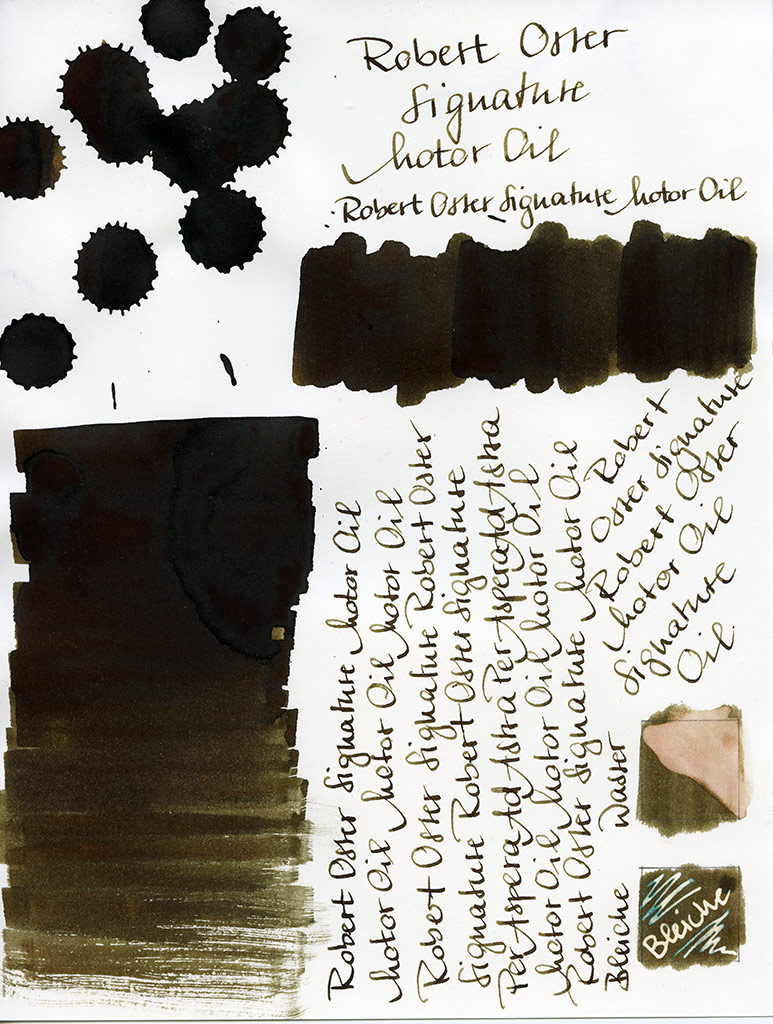 Robert Oster
Signature
Motor Oil
Robert Oster Signature Motor Oil
Robert Oster Signature Motor Oil
Motor Oil Motor Oil Motor Oil
Robert Oster Signature Robert Oster
Signature Robert Oster Signature
Per Aspera Ad Astra Per Aspera Ad Astra
Motor Oil Motor Oil Motor Oil
Robert Oster Signature Motor Oil
Bleiche Wasser
Robert
Oster Signature
Robert Oster
Motor Oil
Signature
Oil
Bleiche